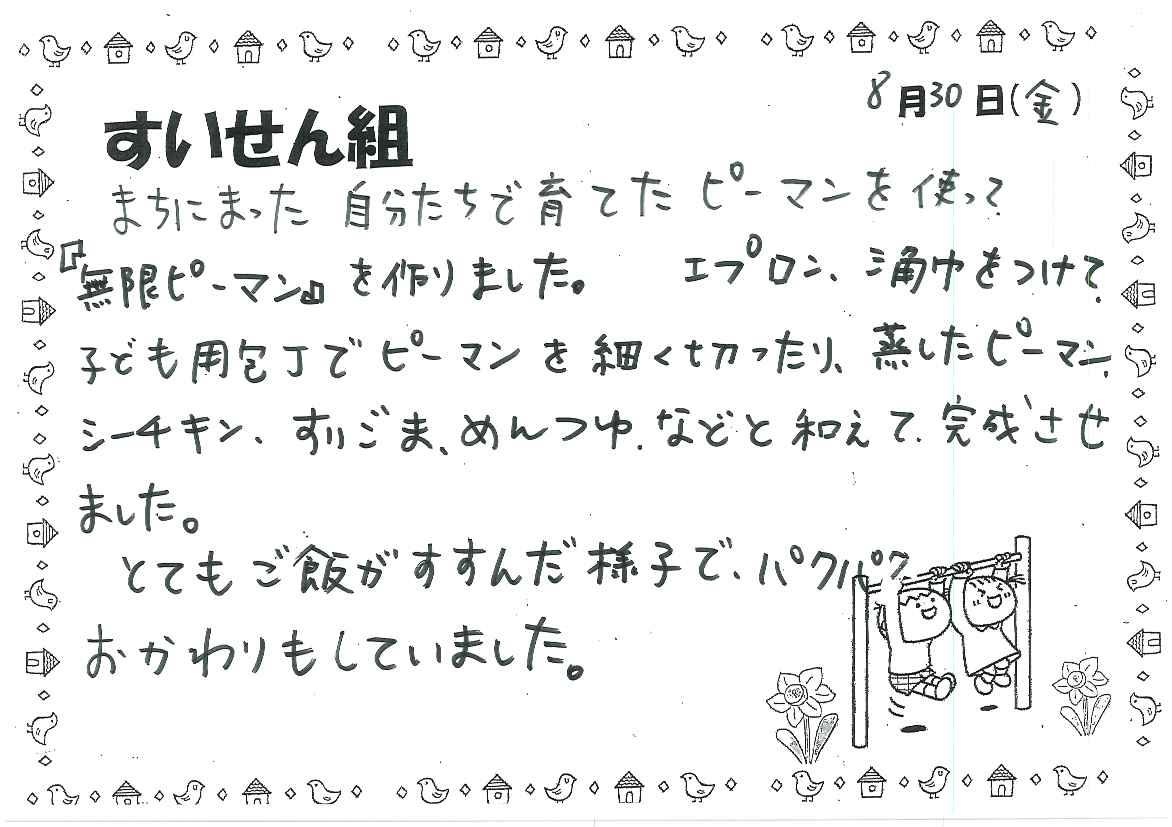 8月30日(金)
すいせん組
まちにまった 自分たちで育てたピーマンを使って
『無限ピーマン』を作りました。 エプロン、三角巾をつけて、
子ども用包丁でピーマンを細く切ったり、蒸したピーマン、
シーチキン、すりごま、めんつゆ、などと和えて、完成させ
ました。
とてもご飯がすすんだ様子で、パクパク
おかわりもしていました。